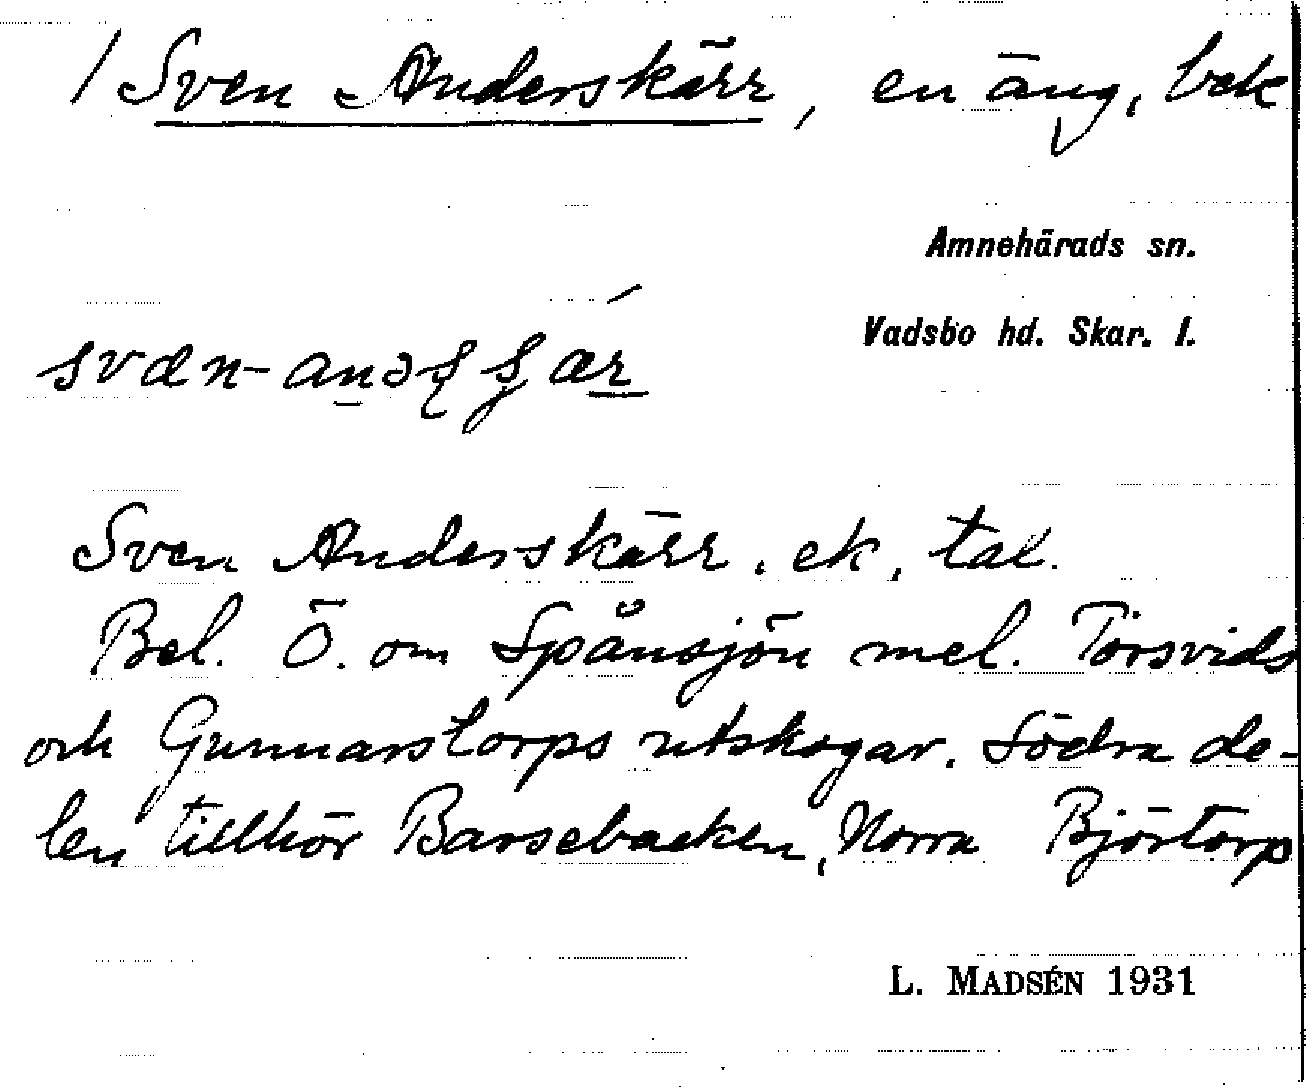 / Sven Anderskärr, en äng, bck
Amnehärads sn.
Vadsbo hd. Skar. l.
Sven Anderskärr. ek, tal.
Bel. Ö. om Spånsjön mel. Torsvids
och Gunnarstorps utskogar. Södra de-
len tillhör Barsebacken, Norra Björtorp
L. MADSÉN 1931